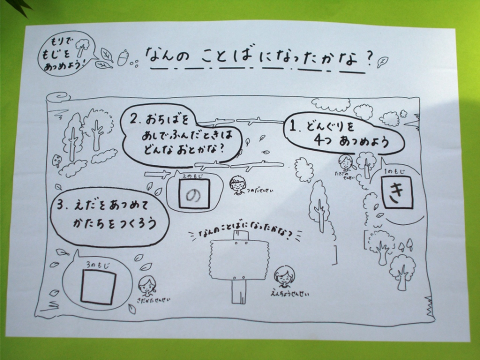 もりで
もじを
あつめよう！
なんの ことばになったかな？
2. おちばを
あしでふんだときは
どんな おとかな？
1. どんぐりを
4つ あつめよう
1のもじ
き
2のもじ
の
3. えだをあつめて
かたちをつくろう
なんのことばになったかな？
3のもじ
えんちょうせんせい